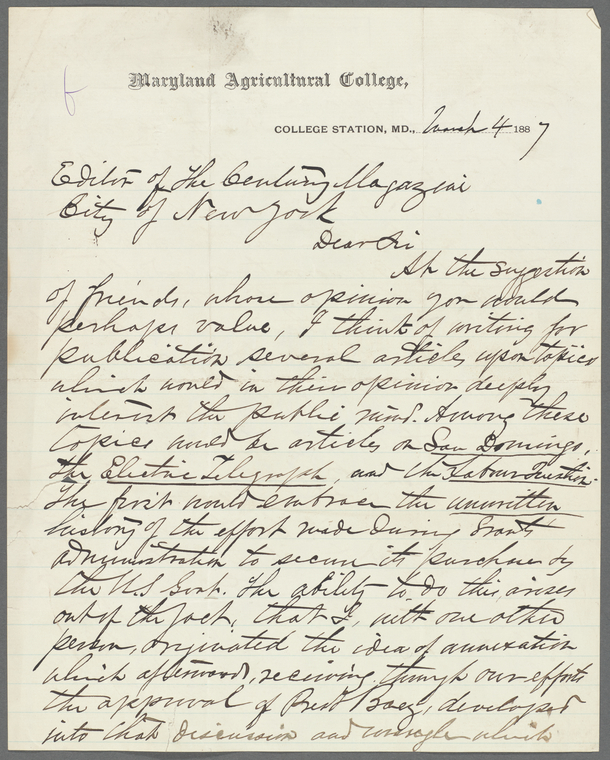 Maryland Agricultural College,
COLLEGE STATION, MD., March 4 1887
Editor of the Century Magazine
City of New York
Dear Sir
At the suggestion
of friends, whose opinion you would
perhaps value, I think of writing for
publication several articles upon topics
which would in their opinion deeply
interest the public mind. Among these
topics would be articles on San Domingo,
the Electric Telegraph, and the Labour Question.
The first would embrace the unwritten
history of the effort made during Grants
administration to secure its purchase by
the U.S Govt. The ability to do this, arises
out of the fact, that I, with one other
person, originated the idea of annexation
which afterwards, receiving, though our efforts
the approval of Prest Baez, developed
into that discussion and wrangle which